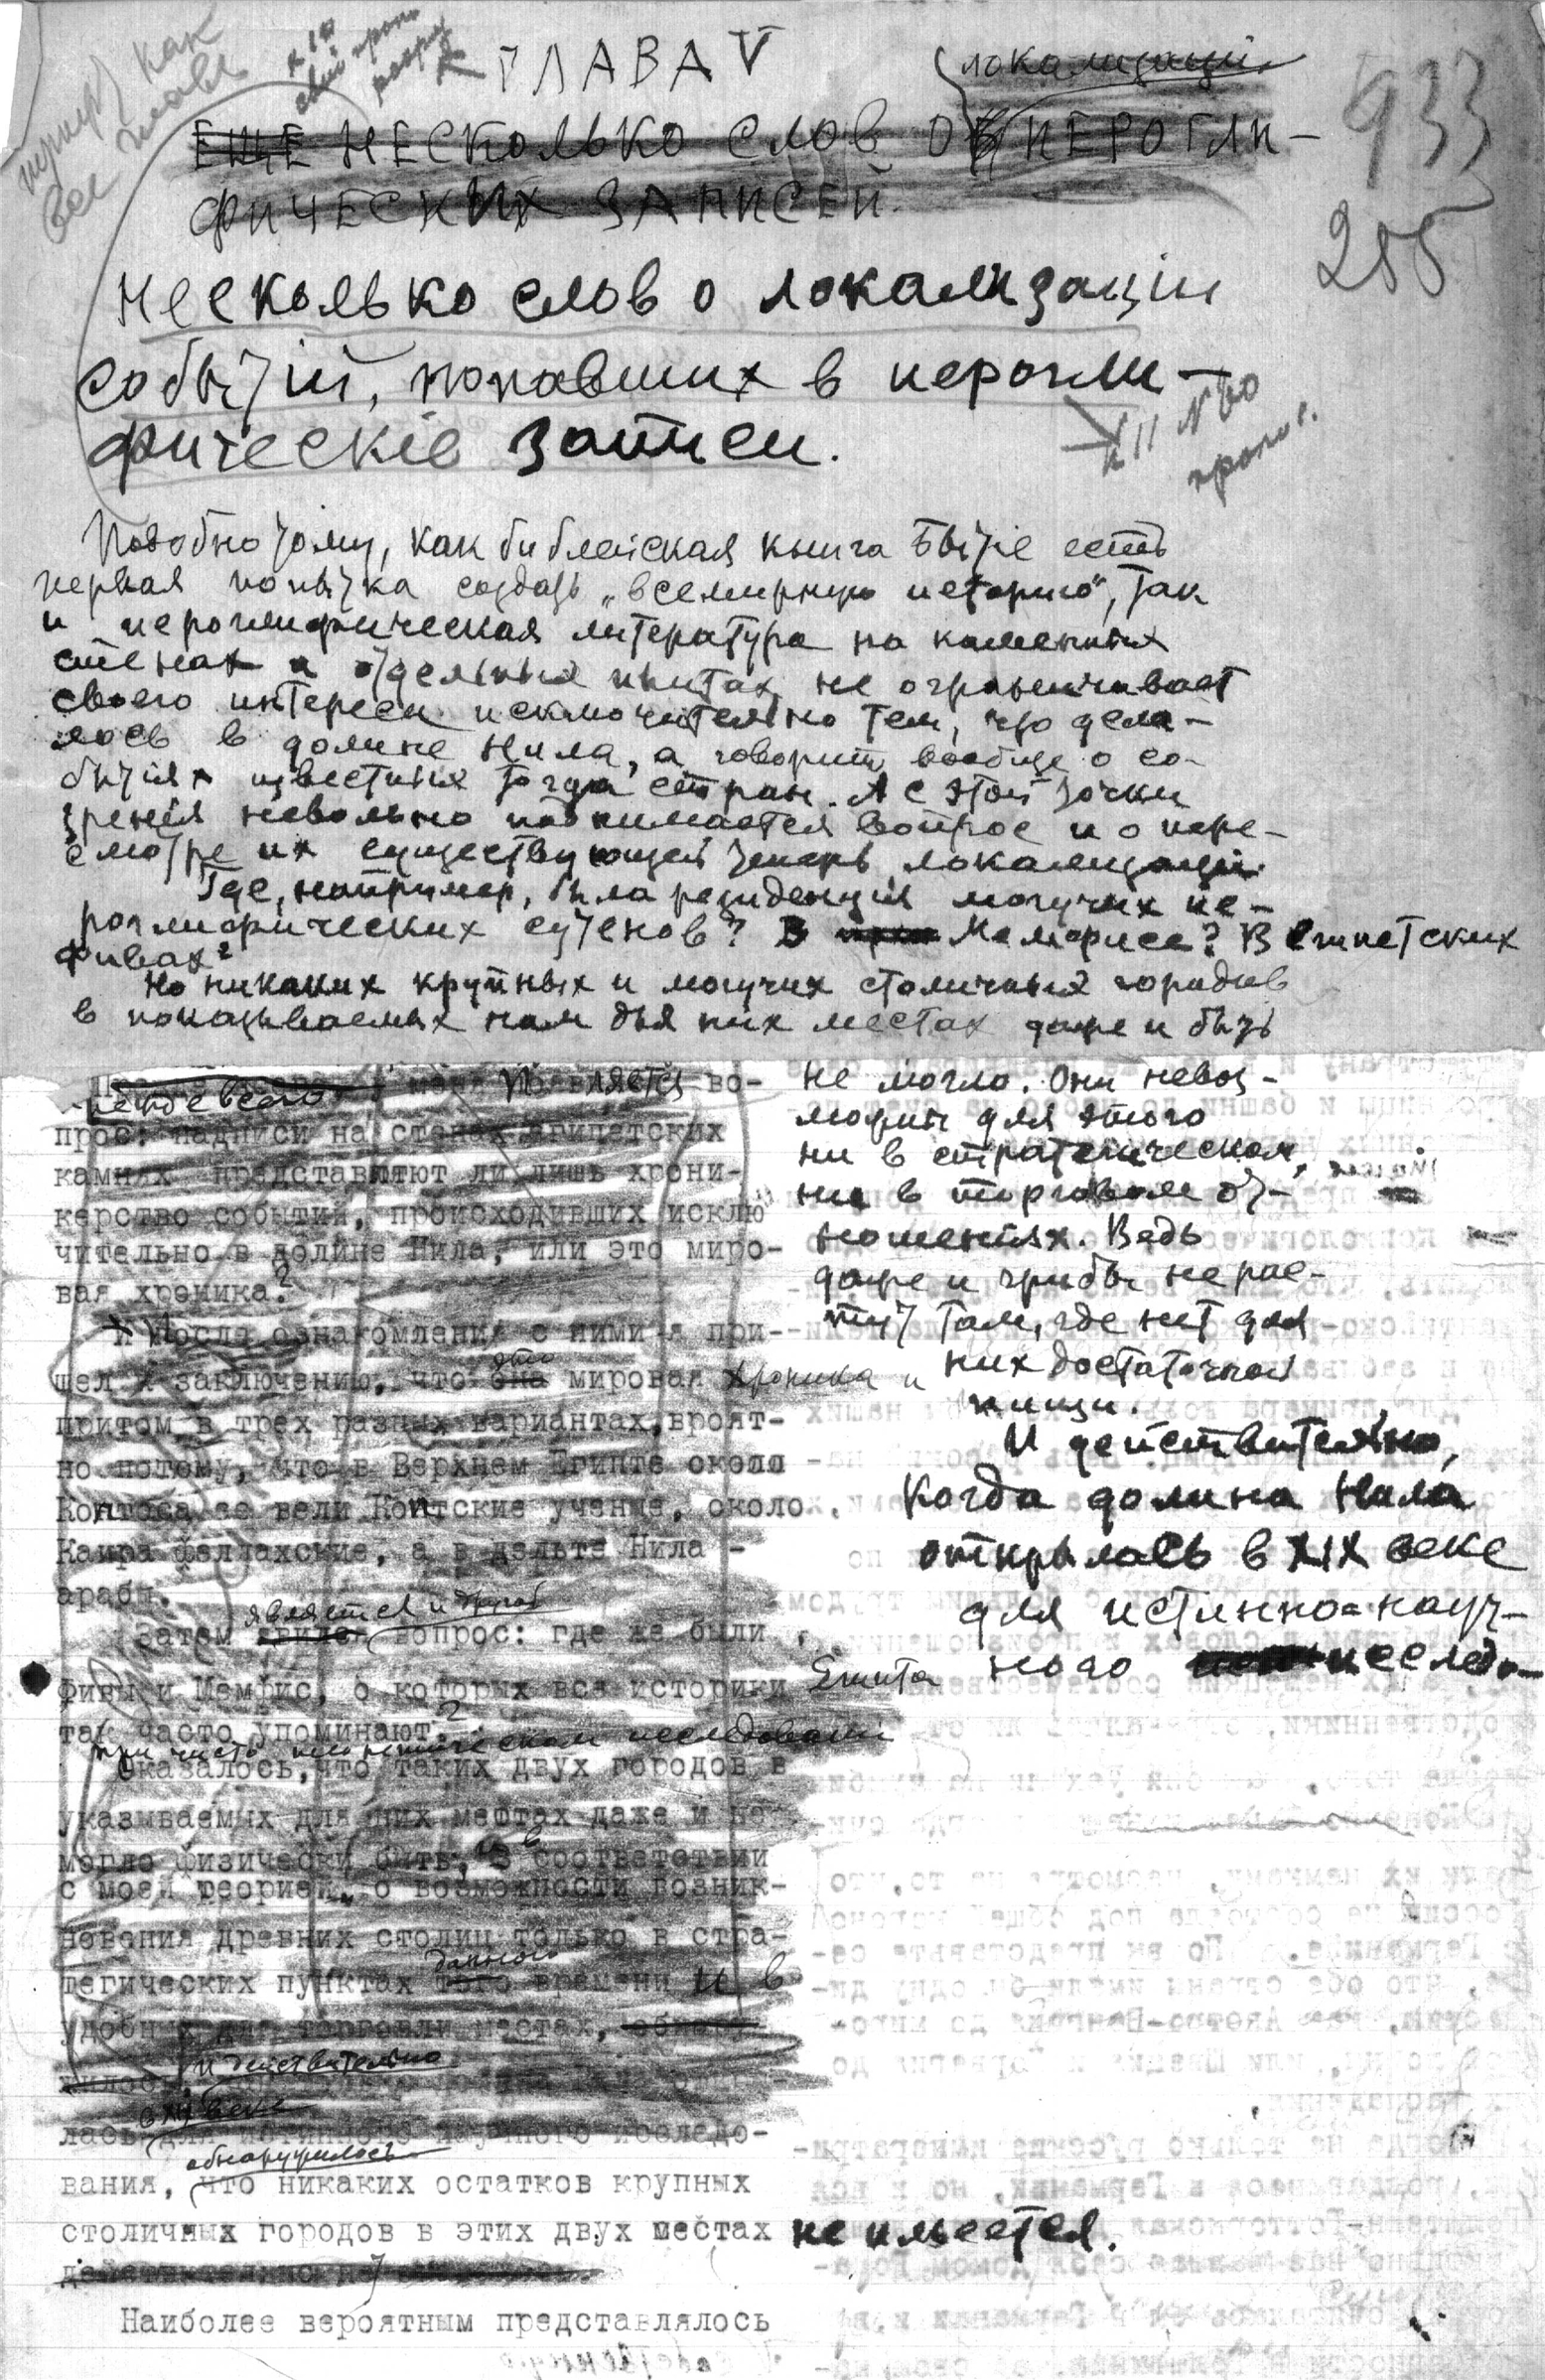 ГЛАВА V
локализаціи
933
ЕЩЕ НЕСКОЛЬКО СЛОВ О ИЕРОГЛИ-
ФИЧЕСКИХ ЗАПИСЕЙ.
255
Несколько слов о локализаціи
событій, попавших в иерогли-
фическіе записи.
Подобно тому, как библейская книга Бытіе есть
первая попытка создать „всемирную историю", так
и иероглифическая литература на каменных
стенах и отдельных плитах не ограничивает
своего интереса исключительно тем, что дела-
лось в долине Нила, а говорит вообще о со-
бытіях известных тогда стран. А с этой точки
зренія невольно поднимается вопрос и о пере-
смотре их существующей теперь локализаціи.
Где, например, была резиденція могучих ие-
роглифических сутенов? В Мемфисе? В египетских
Фивах?
Но никаких крупных и могучих столичных городов
в показываемых нам для них местах даже и быть
не могло. Они невоз-
можны для этого
ни в стратегическом,
ни в торговом от-
ношеніях. Ведь
даже и грибы не рас-
тут там, где нет для
них достаточной
пищи.
И действительно,
когда долина Нила
открылась в XIX веке
для истинно-науч-
ного исследо-
прежде всего у меня появляется во-
прос: надписи на стенах египетских
камнях представляют ли лишь хрони-
керство событий, происходивших исклю
чительно в долине Нила, или это миро-
вая хроника?
И После ознакомления с ними я при-
это
шел к заключению, что она мировая хроника и
притом в трех разных вариантах, вроят-
но потому, что в Верхнем Египте около
Коптоса ее вели Коптские ученые, около
Каира феллахские, а в дельте Нила -
арабы.
является и другой
Затем явился вопрос: где же были
Фивы и Мемфис, о которых все историки Египта
так часто упоминают?
при чисто теоретическом исследовании
Оказалось, что таких двух городов в
указываемых для них местах даже и не
могло физически быть, в соответствии
с моей теорией, о возможности возник-
новения древних столиц только в стра-
данного
тегических пунктах того времени и в
удобных для торговли местах,
И действительно
в XIX веке
лась для истинного научного исследо-
обнаружилось
вания, что никаких остатков крупных
столичных городов в этих двух местах не имеется.
Наиболее вероятным представлялось